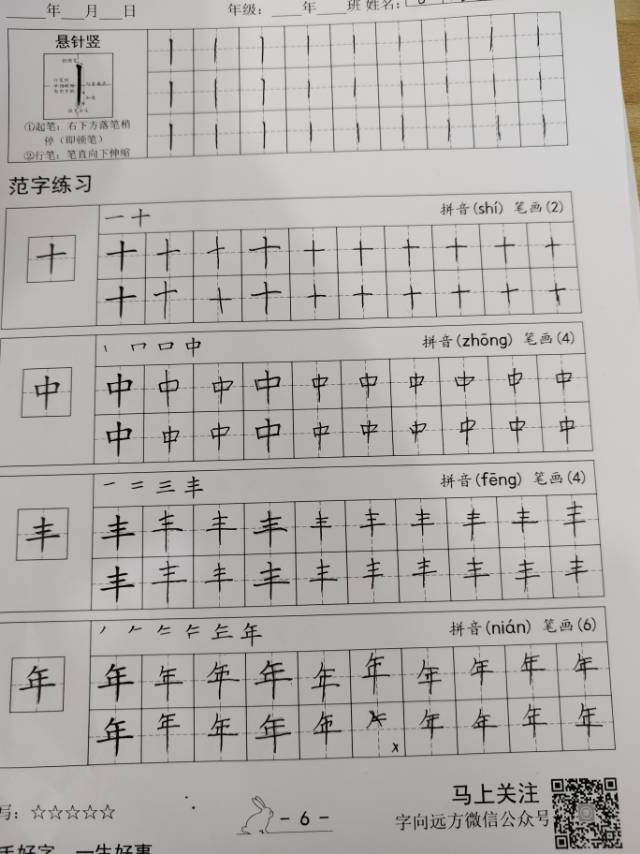 ____年___月___日 年级：____年____班 姓名：
悬针竖
①起笔：右下方落笔稍
停（即顿笔）
②行笔：笔直向下伸缩
范字练习
一 十 拼音(shí) 笔画(2)
十 十 十 十 十 十 十 十 十 十 十
十 十 十 十 十 十 十 十 十 十
丶 冖 口 中 拼音(zhōng) 笔画(4)
中 中 中 中 中 中 中 中 中 中 中
中 中 中 中 中 中 中 中 中 中
一 二 三 丰 拼音(fēng) 笔画(4)
丰 丰 丰 丰 丰 丰 丰 丰 丰 丰 丰
丰 丰 丰 丰 丰 丰 丰 丰 丰 丰
年 拼音(nián) 笔画(6)
年 年 年 年 年 年 年 年 年 年 年
年 年 年 年 年 x 年 年 年 年
写：☆☆☆☆☆
- 6 -
马上关注
字向远方微信公众号
手好字，一生好事